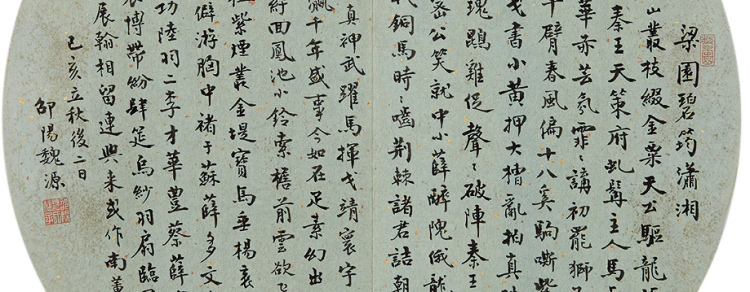 梁園碧筠瀟湘
山叢枝綴金粟天公驅龍
秦王天策府虬髯主人馬
華赤芸氛霏霏講初罷獅
千臂春風偏十八奚駒嘶
戈書小黃押大槽亂拍真
瑰鵾雞促聲聲破陣秦王
宓公笑就中小薛醉隗俄
代銅馬時時嚙荊棘諸君詰朝
真神武躍馬揮戈靖寰宇
贏千年盛事今如在足素幻出
紆面鳳池小鈴索檐前雪欲
紫煙叢金堤寶馬垂楊
僻游胸中褚于蘇薛多文
功陸羽二李才華豊蔡薛
博帶紛肆筵烏紗羽扇臨
展翰相留連興来或作南
己亥立秋後二日
邵陽魏源